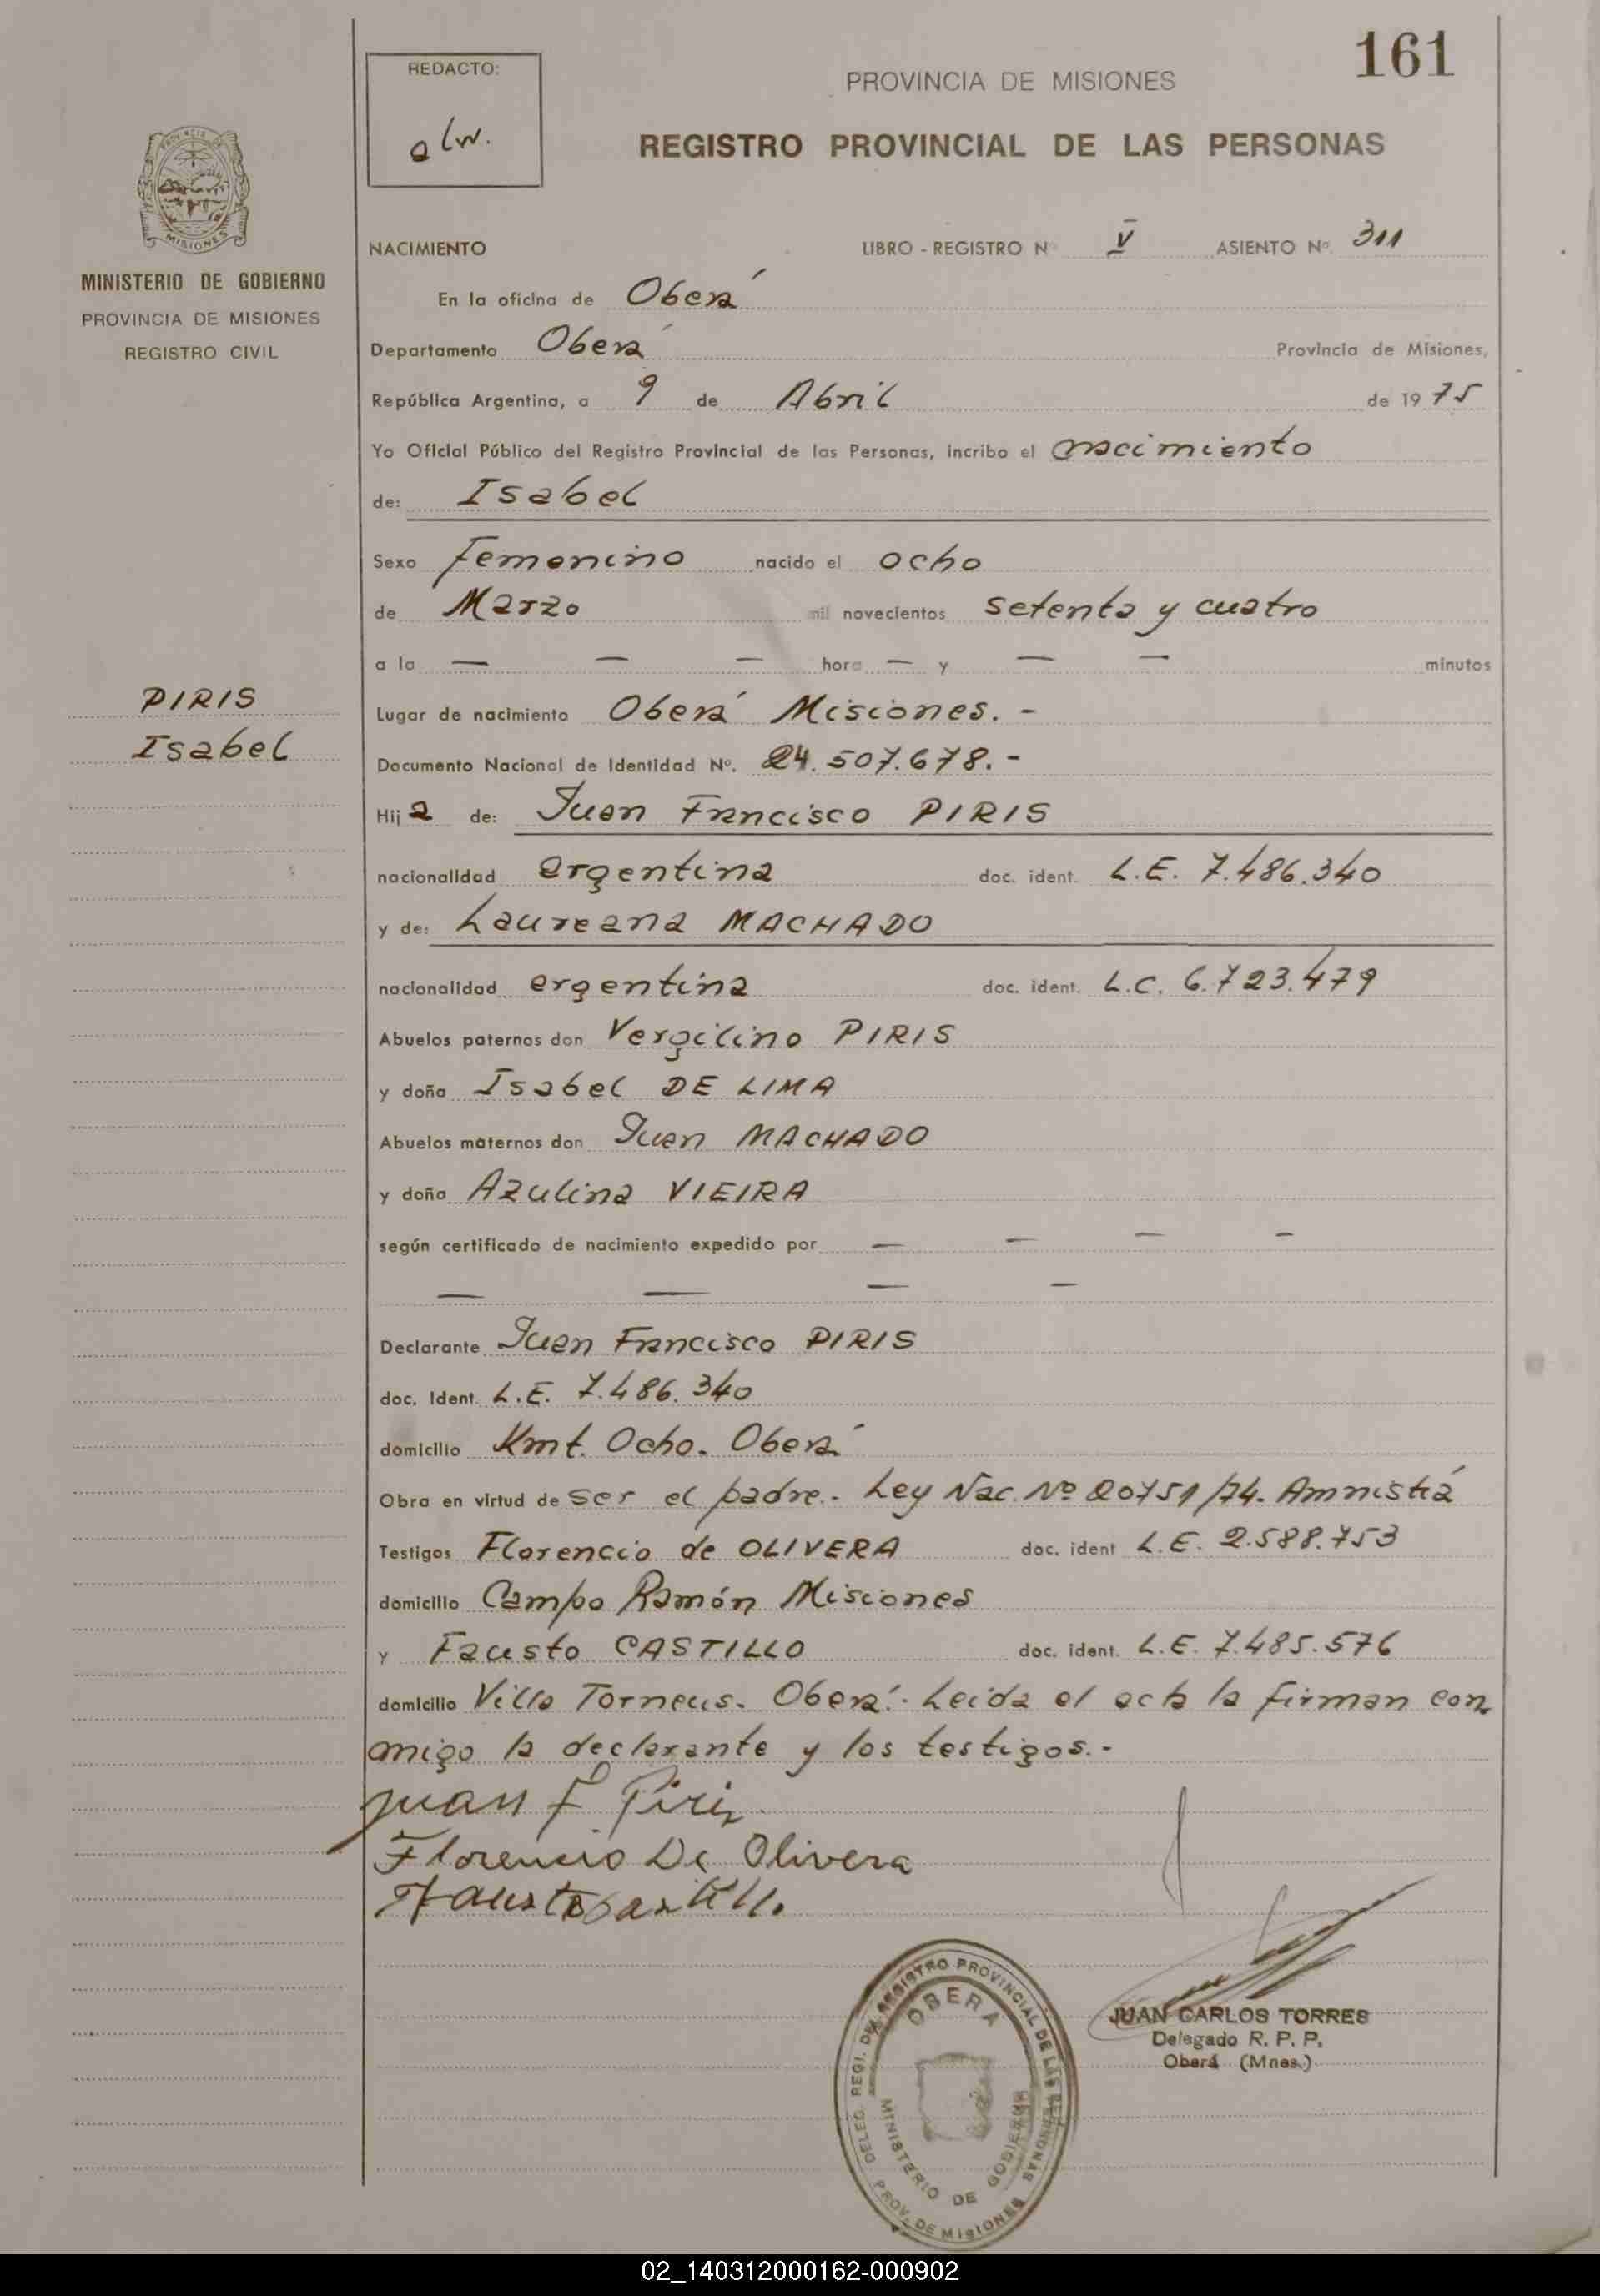 161
REDACTO:
alw.
PROVINCIA DE MISIONES
REGISTRO PROVINCIAL DE LAS PERSONAS
PROVINCIA DE
MISIONES
MINISTERIO DE GOBIERNO
PROVINCIA DE MISIONES
REGISTRO CIVIL
NACIMIENTO LIBRO - REGISTRO Nº V ASIENTO Nº. 311
En la oficina de Oberá
Departamento Oberá Provincia de Misiones,
República Argentina, a 9 de Abril de 1975
Yo Oficial Público del Registro Provincial de las Personas, incribo el nacimiento
de: Isabel
Sexo Femenino nacido el ocho
de Marzo mil novecientos setenta y cuatro
a la — — — hora — y — — minutos
PIRIS
Isabel
Lugar de nacimiento Oberá Misiones. -
Documento Nacional de Identidad Nº. 24.507.678. -
Hija de: Juan Francisco PIRIS
nacionalidad argentina doc. ident. L.E. 7.486.340
y de: Laureana MACHADO
nacionalidad argentina doc. ident. L.C. 6.723.479
Abuelos paternos don Vergilino PIRIS
y doña Isabel DE LIMA
Abuelos maternos don Juan MACHADO
y doña Azulina VIEIRA
según certificado de nacimiento expedido por — — — —
— — — —
Declarante Juan Francisco PIRIS
doc. Ident. L.E. 7.486.340
domicilio Kmt. Ocho. Oberá
Obra en virtud de ser el padre.- Ley Nac. Nº 20751/74. Amnistiá
Testigos Florencio de OLIVERA doc. ident L.E. 2.588.753
domicilio Campo Ramón Misiones
y Fausto CASTILLO doc. ident. L.E. 7.485.576
domicilio Villa Torneus. Oberá.- Leida el acta la firman con
migo la declarante y los testigos.-
Juan F Piris
Florencio De Olivera
Fausto Castillo
DELEG. REGI. DEL REGISTRO PROVINCIAL DE LAS PERSONAS
OBERA
MINISTERIO DE GOBIERNO
PROV. DE MISIONES
JUAN CARLOS TORRES
Delegado R. P. P.
Oberá (Mnes.)
02_140312000162-000902